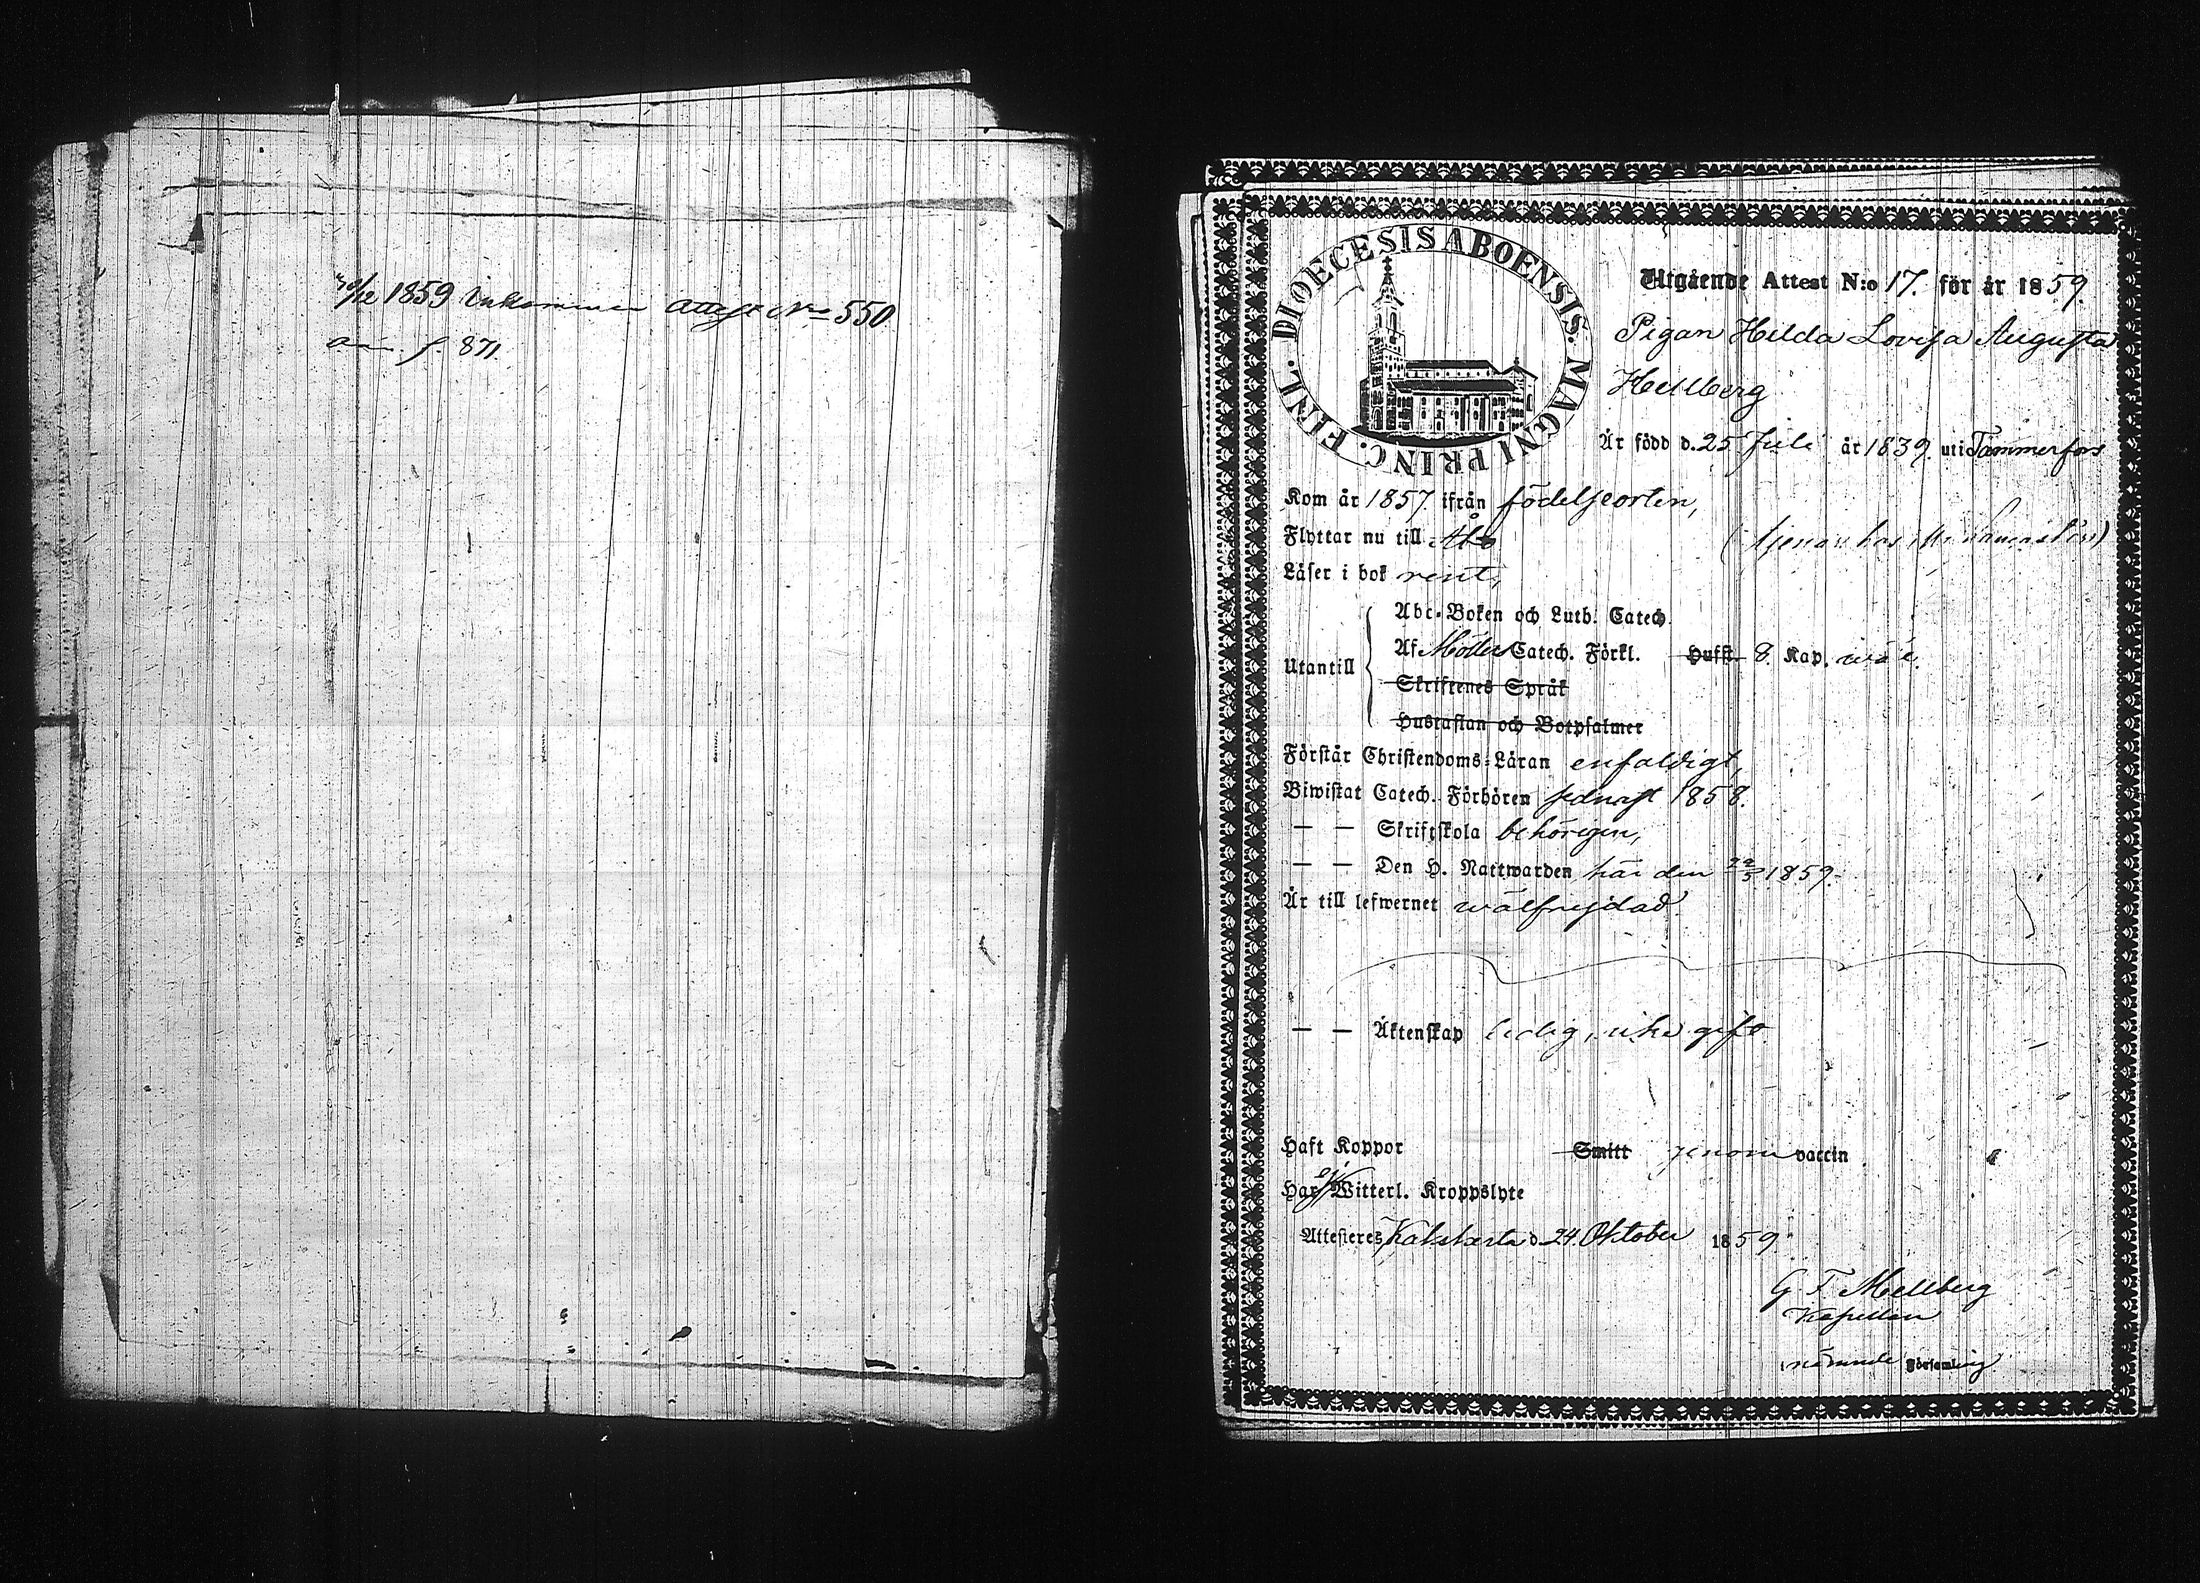 30/12 1859 Inkommen attest No 550
p. 871.
DIOECESIS ABOENSIS. MAGNI PRINC. FINL.
Utgående Attest N:o 17. för år 1859.
Pigan Hilda Lovisa Augusta
Hellberg
Är född d. 25 Juli år 1839. uti Tammerfors
Kom år 1857. ifrån födelseorten,
Flyttar nu till Åbo (tjenar hos
Läser i bok rent,
Utantill
Abc-Boken och Luth. Catech.
Af Möllers Catech. Förkl. Hufst. 8. Kap. wäl.
Skriftenes Språk
Hustaflan och Botpsalmer
Förstår Christendoms-Läran enfaldigt,
Biwistat Catech. Förhören sednast 1858.
— — Skriftskola behörigen,
— — Den H. Nattwarden här den 22/5 1859.
Är till lefwernet wälfrejdad
— — Äktenskap ledig, icke gift
Haft Koppor Smitt genom vaccin
Har ej Witterl. Kroppslyte
Attesteres Kakskerta d. 24. Oktober 1859
G F Mellberg
Kapellan
i nämnde Församling